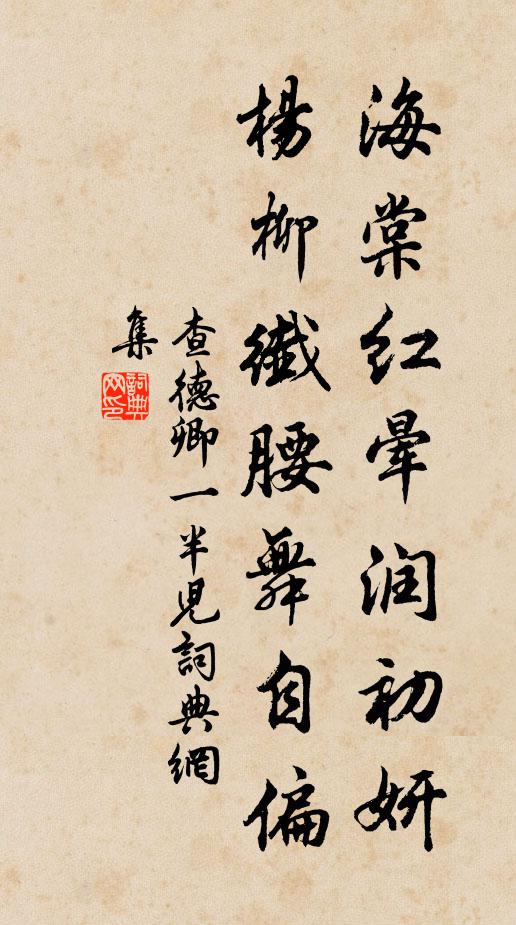 海棠红晕润初妍
楊柳纖腰舞自偏
查德卿一半児詞典網
集
詞典
网印